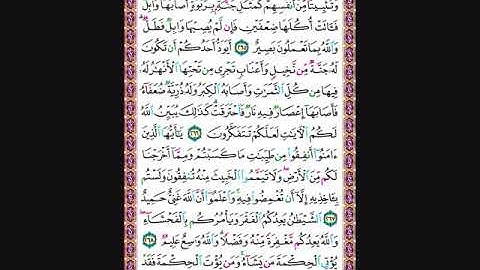 وَتَثْبِيتًا مِّنْ أَنفُسِهِمْ كَمَثَلِ جَنَّةٍ بِرَبْوَةٍ أَصَابَهَا وَابِلٌ
فَـَٔاتَتْ أُكُلَهَا ضِعْفَيْنِ فَإِن لَّمْ يُصِبْهَا وَابِلٌ فَطَلٌّ
وَاللَّهُ بِمَا تَعْمَلُونَ بَصِيرٌ ٢٦٥ أَيَوَدُّ أَحَدُكُمْ أَن تَكُونَ
لَهُۥ جَنَّةٌ مِّن نَّخِيلٍ وَأَعْنَابٍ تَجْرِى مِن تَحْتِهَا الْأَنْهَٰرُ لَهُۥ
فِيهَا مِن كُلِّ الثَّمَرَٰتِ وَأَصَابَهُ الْكِبَرُ وَلَهُۥ ذُرِّيَّةٌ ضُعَفَآءُ
فَأَصَابَهَآ إِعْصَارٌ فِيهِ نَارٌ فَاحْتَرَقَتْ كَذَٰلِكَ يُبَيِّنُ اللَّهُ
لَكُمُ الْءَايَٰتِ لَعَلَّكُمْ تَتَفَكَّرُونَ ٢٦٦ يَٰٓأَيُّهَا الَّذِينَ
ءَامَنُوٓا۟ أَنفِقُوا۟ مِن طَيِّبَٰتِ مَا كَسَبْتُمْ وَمِمَّآ أَخْرَجْنَا
لَكُم مِّنَ الْأَرْضِ وَلَا تَيَمَّمُوا۟ الْخَبِيثَ مِنْهُ تُنفِقُونَ وَلَسْتُم
بِـَٔاخِذِيهِ إِلَّآ أَن تُغْمِضُوا۟ فِيهِ وَاعْلَمُوٓا۟ أَنَّ اللَّهَ غَنِىٌّ حَمِيدٌ
٢٦٧ الشَّيْطَٰنُ يَعِدُكُمُ الْفَقْرَ وَيَأْمُرُكُم بِالْفَحْشَآءِ
وَاللَّهُ يَعِدُكُم مَّغْفِرَةً مِّنْهُ وَفَضْلًا وَاللَّهُ وَٰسِعٌ عَلِيمٌ ٢٦٨
يُؤْتِى الْحِكْمَةَ مَن يَشَآءُ وَمَن يُؤْتَ الْحِكْمَةَ فَقَدْ